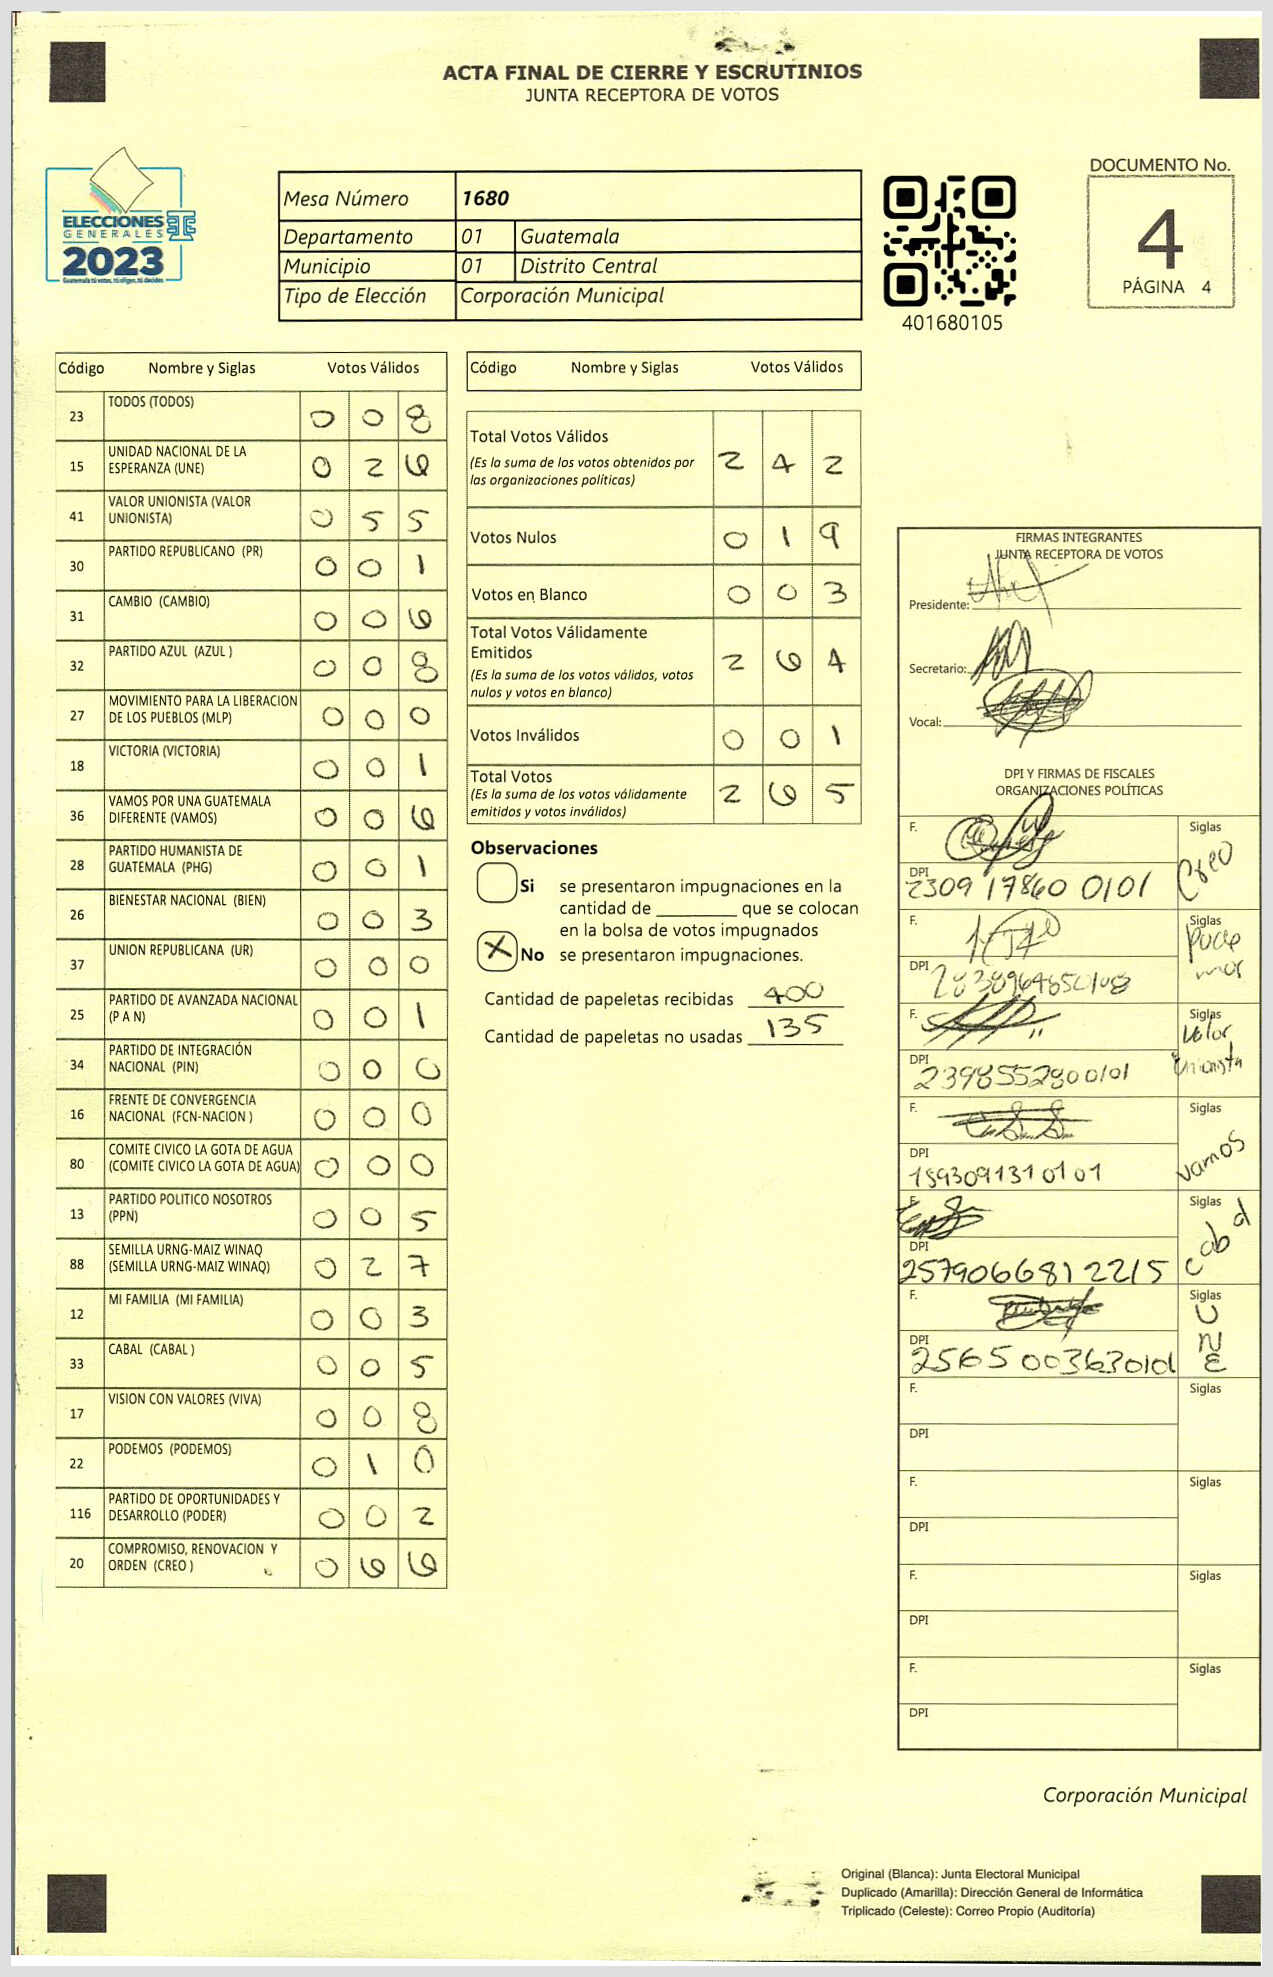 ACTA FINAL DE CIERRE Y ESCRUTINIOS
JUNTA RECEPTORA DE VOTOS
ELECCIONES
GENERALES
2023
Guatemala tú votas, tú eliges, tú decides
Mesa Número 1680
Departamento 01 Guatemala
Municipio 01 Distrito Central
Tipo de Elección Corporación Municipal
401680105
DOCUMENTO No.
4
PÁGINA 4
Código Nombre y Siglas Votos Válidos
23 TODOS (TODOS) 0 0 8
15 UNIDAD NACIONAL DE LA ESPERANZA (UNE) 0 2 6
41 VALOR UNIONISTA (VALOR UNIONISTA) 0 5 5
30 PARTIDO REPUBLICANO (PR) 0 0 1
31 CAMBIO (CAMBIO) 0 0 6
32 PARTIDO AZUL (AZUL ) 0 0 8
27 MOVIMIENTO PARA LA LIBERACION DE LOS PUEBLOS (MLP) 0 0 0
18 VICTORIA (VICTORIA) 0 0 1
36 VAMOS POR UNA GUATEMALA DIFERENTE (VAMOS) 0 0 6
28 PARTIDO HUMANISTA DE GUATEMALA (PHG) 0 0 1
26 BIENESTAR NACIONAL (BIEN) 0 0 3
37 UNION REPUBLICANA (UR) 0 0 0
25 PARTIDO DE AVANZADA NACIONAL (P A N) 0 0 1
34 PARTIDO DE INTEGRACIÓN NACIONAL (PIN) 0 0 0
16 FRENTE DE CONVERGENCIA NACIONAL (FCN-NACION ) 0 0 0
80 COMITE CIVICO LA GOTA DE AGUA (COMITE CIVICO LA GOTA DE AGUA) 0 0 0
13 PARTIDO POLITICO NOSOTROS (PPN) 0 0 5
88 SEMILLA URNG-MAIZ WINAQ (SEMILLA URNG-MAIZ WINAQ) 0 2 7
12 MI FAMILIA (MI FAMILIA) 0 0 3
33 CABAL (CABAL ) 0 0 5
17 VISION CON VALORES (VIVA) 0 0 8
22 PODEMOS (PODEMOS) 0 1 0
116 PARTIDO DE OPORTUNIDADES Y DESARROLLO (PODER) 0 0 2
20 COMPROMISO, RENOVACION Y ORDEN (CREO ) 0 6 6
Código Nombre y Siglas Votos Válidos
Total Votos Válidos 2 4 2
(Es la suma de los votos obtenidos por
las organizaciones políticas)
Votos Nulos 0 1 9
Votos en Blanco 0 0 3
Total Votos Válidamente
Emitidos 2 6 4
(Es la suma de los votos válidos, votos
nulos y votos en blanco)
Votos Inválidos 0 0 1
Total Votos 2 6 5
(Es la suma de los votos válidamente
emitidos y votos inválidos)
Observaciones
Si se presentaron impugnaciones en la
cantidad de ________ que se colocan
en la bolsa de votos impugnados
X No se presentaron impugnaciones.
Cantidad de papeletas recibidas 400
Cantidad de papeletas no usadas 135
FIRMAS INTEGRANTES
JUNTA RECEPTORA DE VOTOS
Presidente:
Secretario:
Vocal:
DPI Y FIRMAS DE FISCALES
ORGANIZACIONES POLÍTICAS
F. Siglas Creo
DPI 2309 17860 0101
F. Siglas
DPI
F. Siglas Valor Unionista
DPI 2398552800101
F. Siglas Vamos
DPI 1893091310101
F. Siglas Cabal
DPI 2579066812215
F. Siglas UNE
DPI 2565003630101
F. Siglas
DPI
F. Siglas
DPI
F. Siglas
DPI
F. Siglas
DPI
Corporación Municipal
Original (Blanca): Junta Electoral Municipal
Duplicado (Amarilla): Dirección General de Informática
Triplicado (Celeste): Correo Propio (Auditoría)